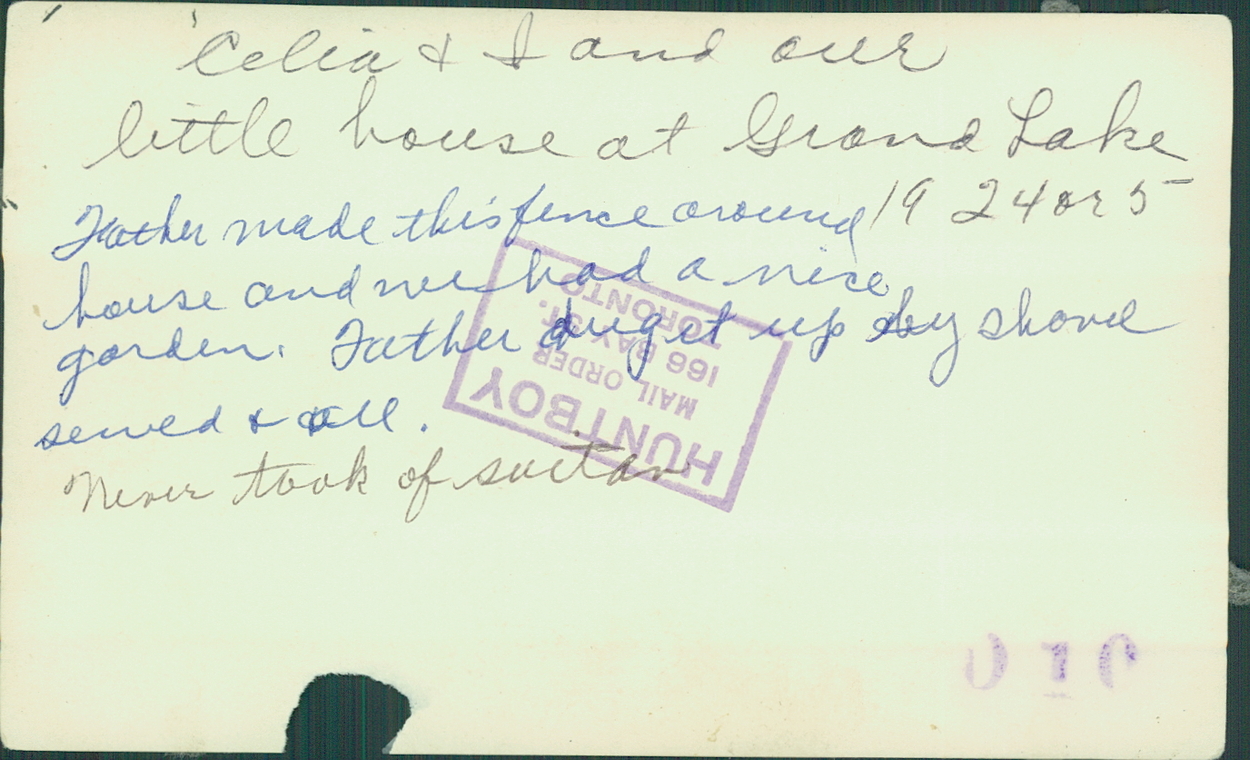 Celia & I and our
little house at Grand Lake
1924 or 5
Father made this fence around
house and we had a nice
garden. Father dug et up by shovel
sewed & all.
Never took of
HUNTBOY
MAIL ORDER
166 BAY ST.
TORONTO
010